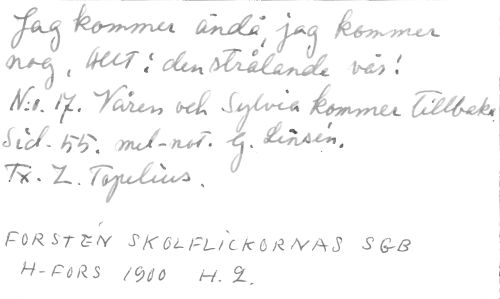 Jag kommer ändå, jag kommer
nog, Allt i den strålande vås!
N:o. 17. Våren och Sylvia kommer tillbaka.
Sid. 55. mel-not. G. Linsén.
Tx. Z. Topelius.
FORSTÉN SKOLFLICKORNAS SGB
H-FORS 1900 H. 2.